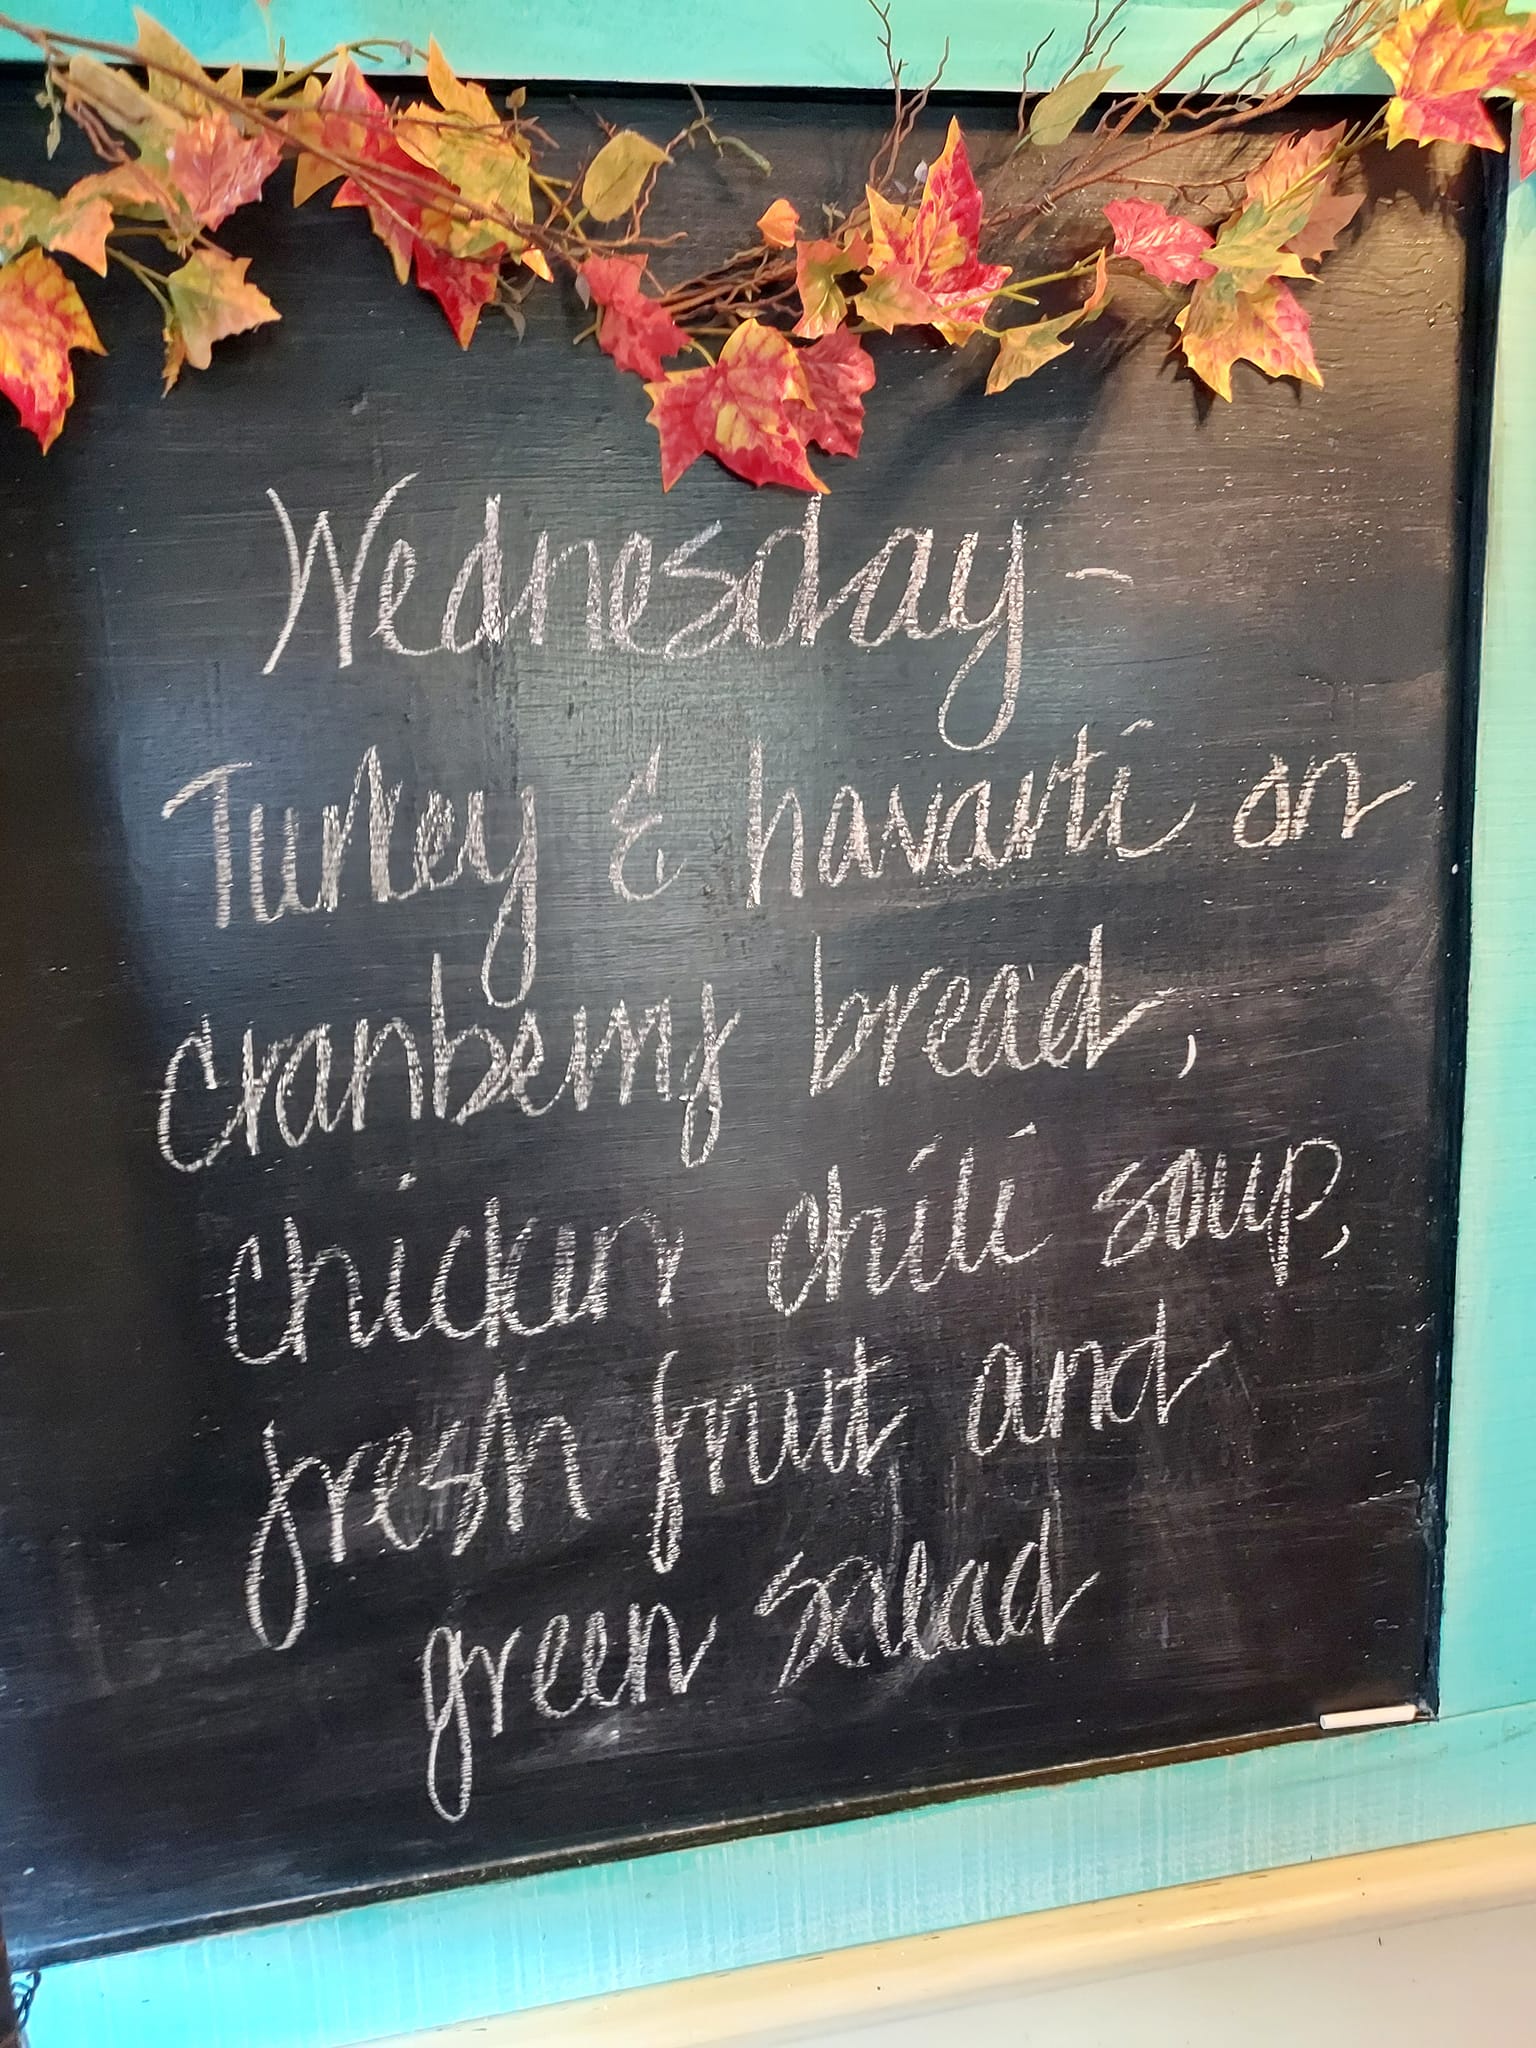 Wednesday -
Turkey & havarti on
cranberry bread,
chicken chili soup,
fresh fruit and
green salad